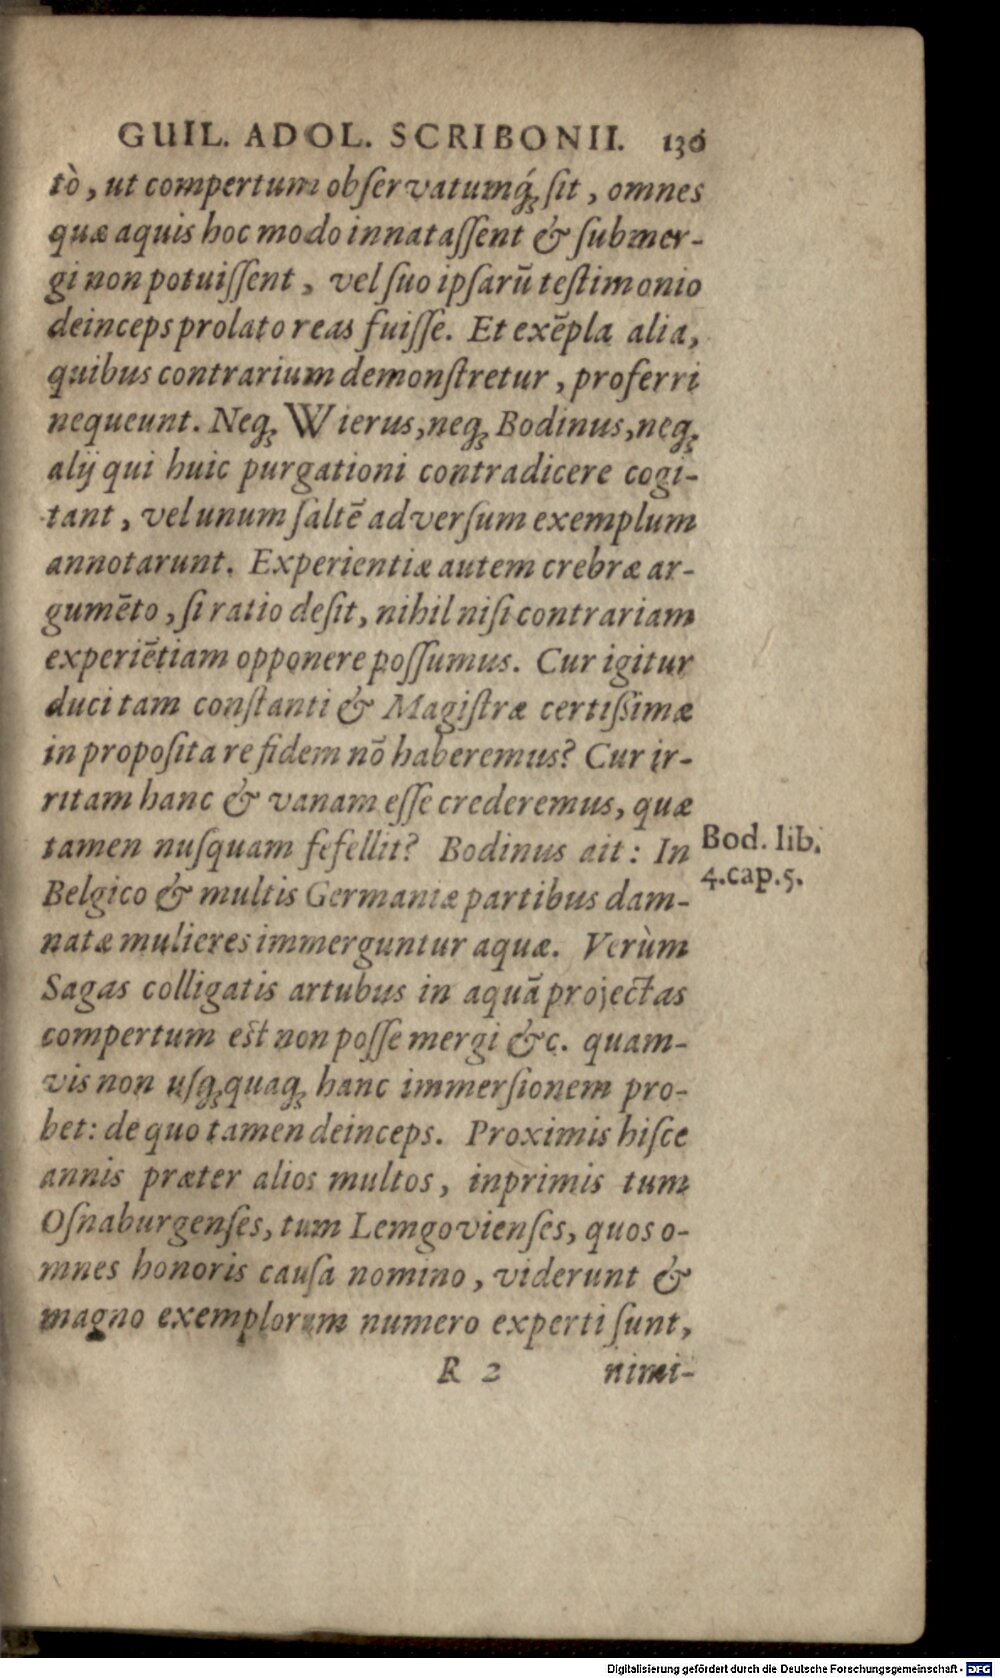 GUIL. ADOL. SCRIBONII. 130
tò, ut compertum obſervatumq́ꝫ ſit, omnes
quæ aquis hoc modo innataſſent & ſubmer-
gi non potuiſſent, vel ſuo ipſarū teſtimonio
deinceps prolato reas fuiſſe. Et exēpla alia,
quibus contrarium demonſtretur, proferri
nequeunt. Neqꝫ Wierus, neqꝫ Bodinus, neqꝫ
alij qui huic purgationi contradicere cogi-
tant, vel unum ſaltē adverſum exemplum
annotarunt. Experientiæ autem crebræ ar-
gumēto, ſi ratio deſit, nihil niſi contrariam
experiētiam opponere poſſumus. Cur igitur
duci tam conſtanti & Magiſtræ certiſsimæ
in propoſita re fidem nō haberemus? Cur ir-
ritam hanc & vanam eſſe crederemus, quæ
tamen nuſquam fefellit? Bodinus ait: In
Bod. lib.
4.cap.5.
Belgico & multis Germaniæ partibus dam-
natæ mulieres immerguntur aquæ. Verùm
Sagas colligatis artubus in aquā projectas
compertum eſt non poſſe mergi &c. quam-
vis non uſqꝫquaqꝫ hanc immerſionem pro-
bet: de quo tamen deinceps. Proximis hiſce
annis præter alios multos, inprimis tum
Oſnaburgenſes, tum Lemgovienſes, quos o-
mnes honoris cauſa nomino, viderunt &
magno exemplorum numero experti ſunt,
R 2 nimi-
Digitalisierung gefördert durch die Deutsche Forschungsgemeinschaft - DFG